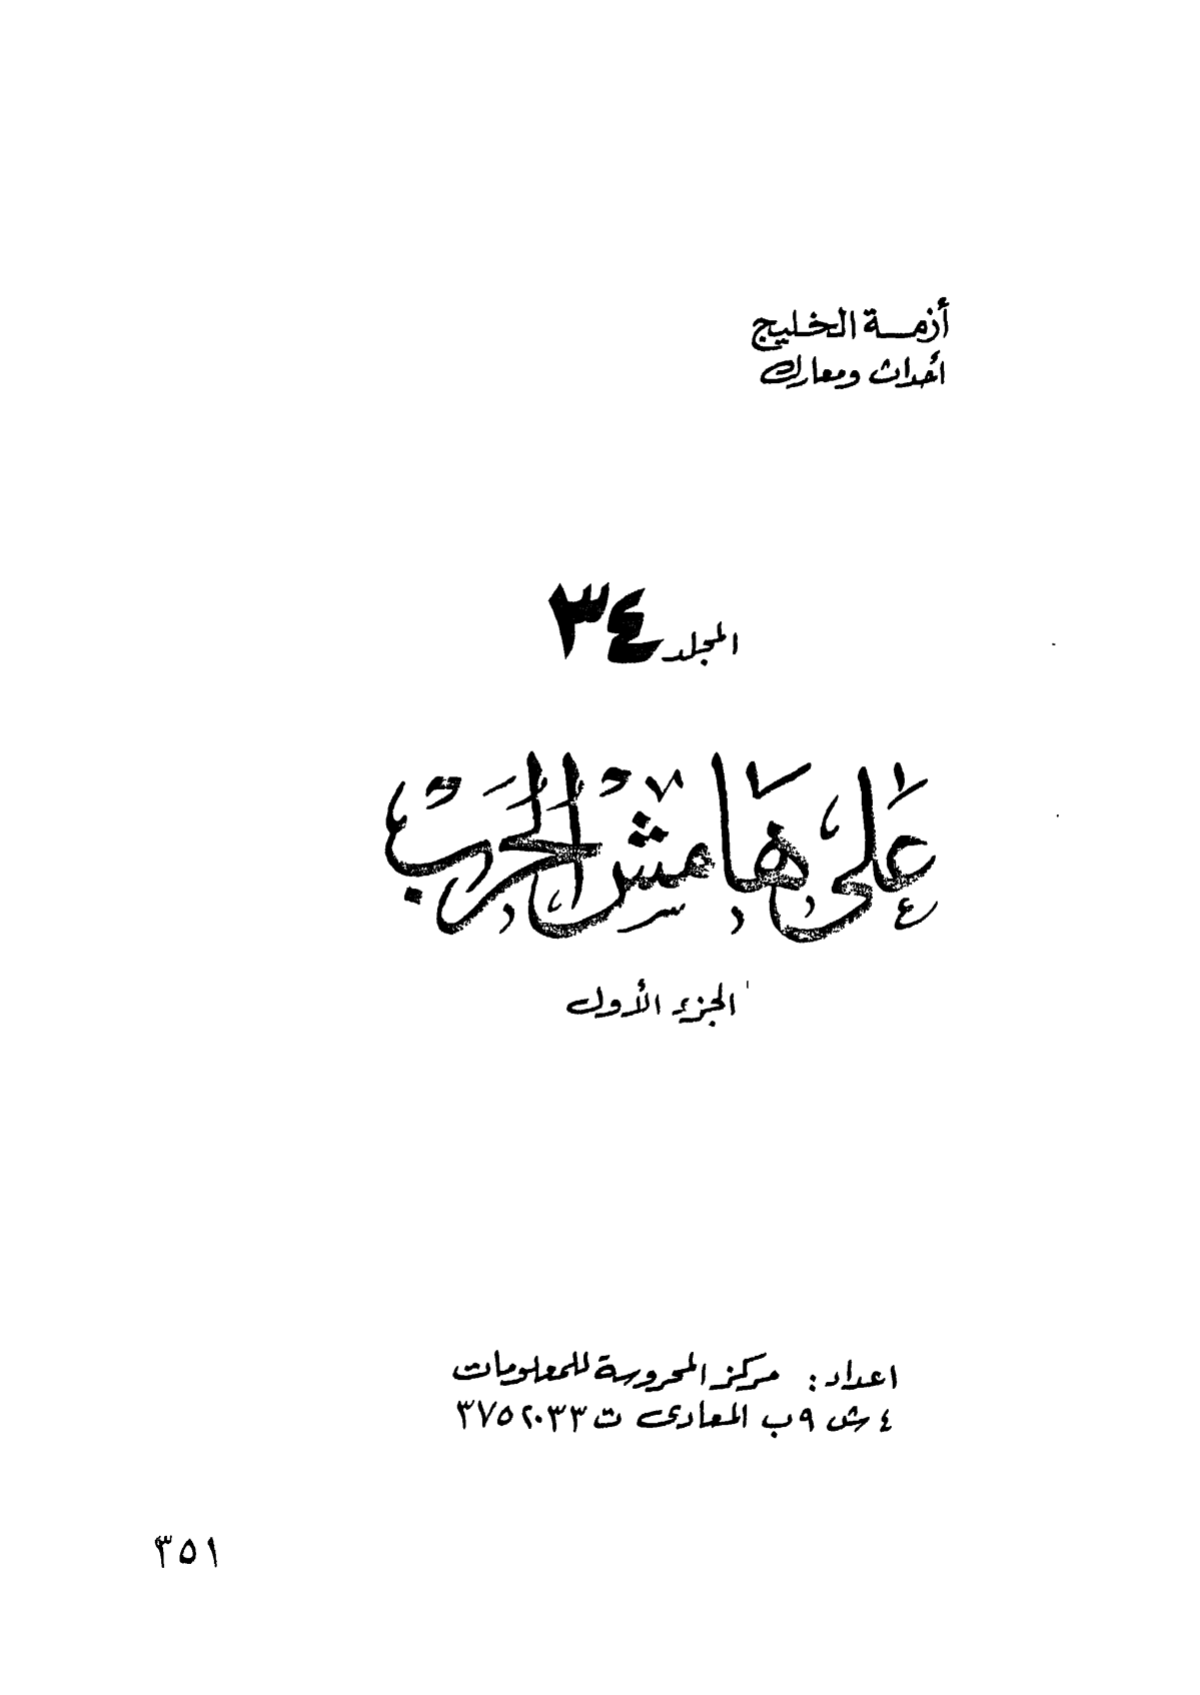 أزمة الخليج
أحداث ومعارك
المجلد ٣٤
على هامش الحرب
الجزء الأول
اعداد : مركز المحروسة للمعلومات
٤ ش ٩ب المعادى ت ٣٧٥٢٠٣٣
٣٥١